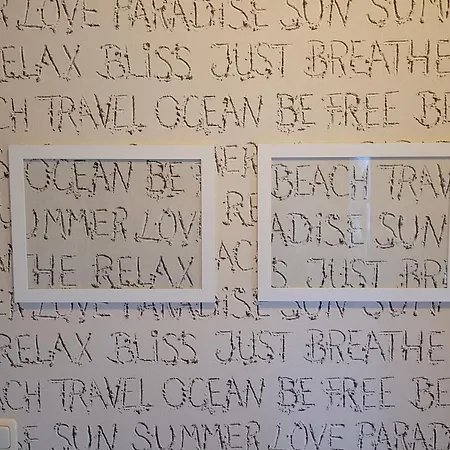 LOVE PARADISE SUN SUMM
RELAX BLISS JUST BREATHE
ACH TRAVEL OCEAN BE FREE BE
OCEAN BE
BEACH TRAV
UMMER LOVE
RE
ADISE SUN
HE RELAX
AC
S JUST BR
LOVE PARADISE SUN SUM
RELAX BLISS JUST BREATHE
ACH TRAVEL OCEAN BE FREE BE
SUN SUMMER LOVE PARAD